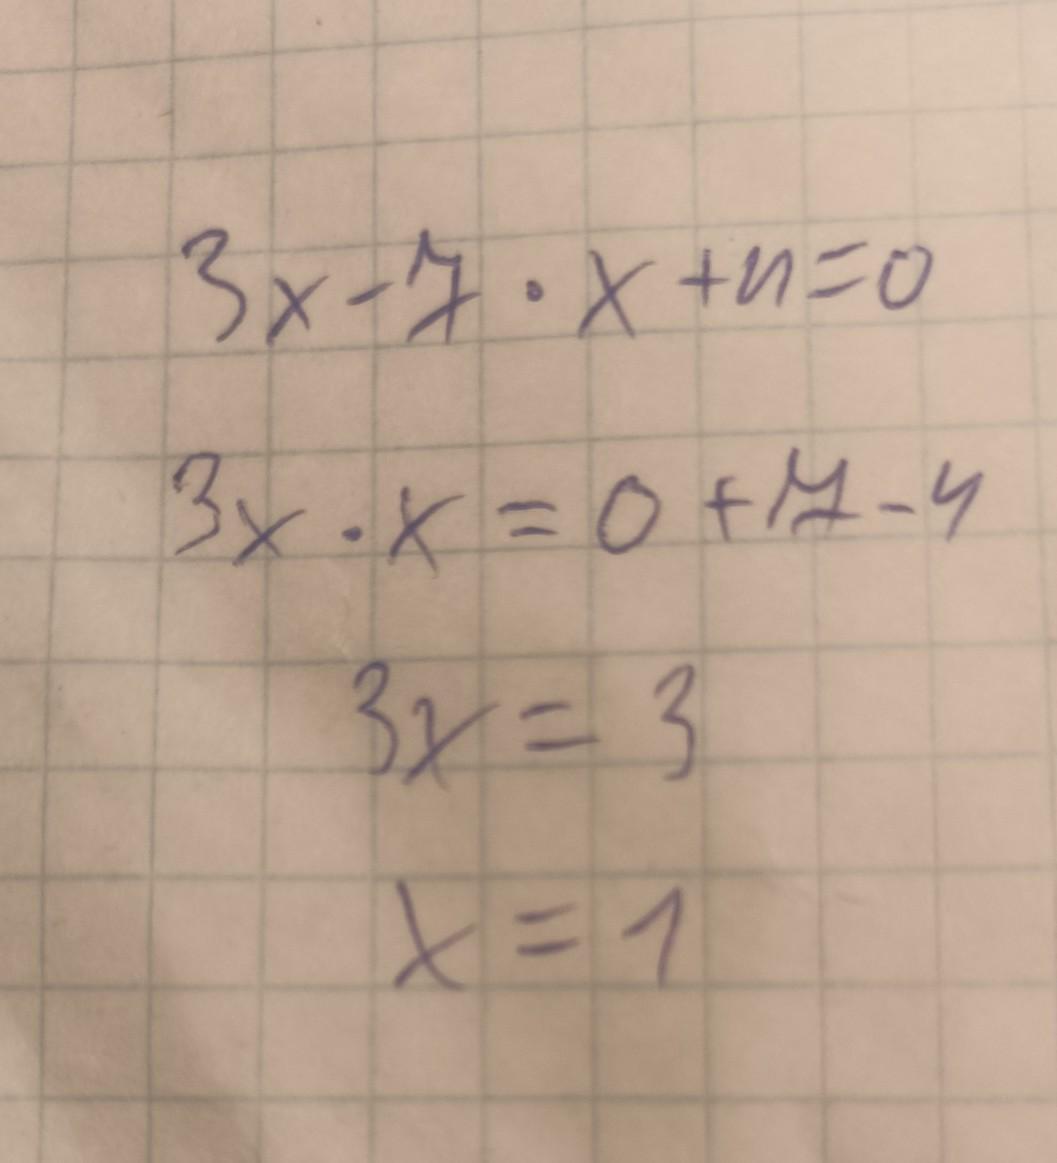 3x-7·x+4=0
3x·x=0+7-4
3x=3
x=1